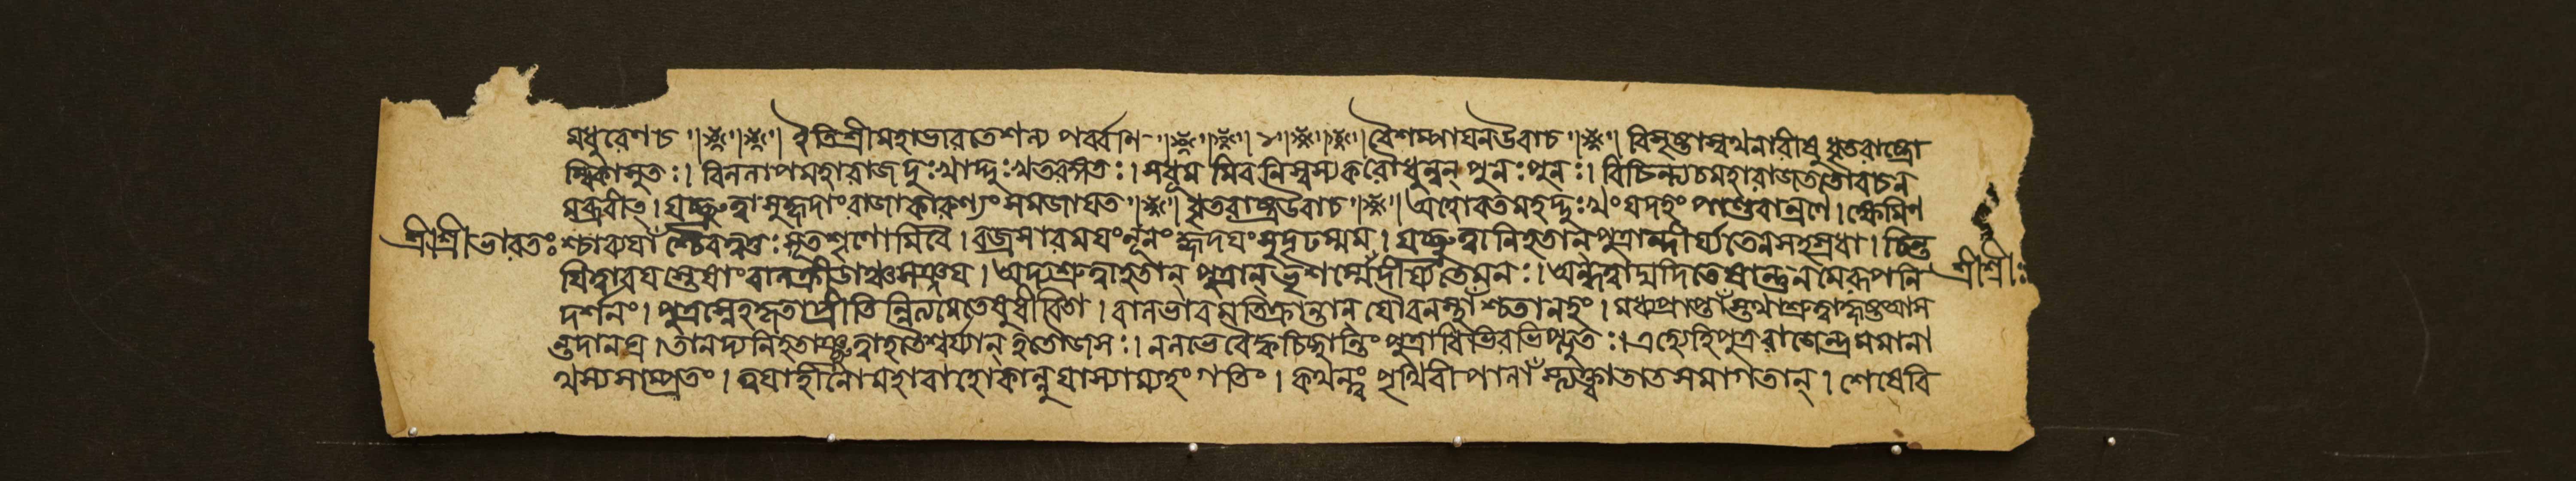 মধুরেণ চ ॥※॥※॥ ইতিশ্রীমহাভারতেশল্য পর্ব্বণি ॥※॥※॥ ১॥※॥※॥ বৈশম্পায়নউবাচ ॥※॥ বিসৃষ্টাস্বথনারীষু ধৃতরাষ্ট্রো
ম্বিকাসুতঃ। বিললাপমহারাজদুঃখাদ্দুঃখতরঙ্গতঃ। সধূম মিবনিস্বস্যকরৌধুন্বন্ পুনঃপুনঃ। বিচিন্ত্যচমহারাজততোবচন
মব্রবীত্। যচ্ছ্রুত্বাসুহৃদাংরাজাকারুণ্যং সমজায়ত ॥※॥ ধৃতরাষ্ট্রউবাচ ॥※॥ অহোবতমহদ্দুঃখং যদহং পাণ্ডবান্রণে। ক্ষেমিণ
শ্রীশ্রীভারতঃ শ্চাব্যয়াঁশ্চৈবত্বত্তঃ সূতশৃণোমিবৈ। বজ্রসারময়ংনূনং হৃদয়ংসুদৃঢম্মম। যচ্ছ্রুত্বানিহতান্ পুত্রান্দীর্য্যতেনসহস্রধা। চিন্ত
য়িত্বাবয়স্তেষাংবালক্রীডাঞ্চসঞ্জয়। অদ্যশ্রুত্বাহতান্ পুত্রান্ ভৃশম্মেদীর্য্যতেমনঃ। অন্ধত্বাদ্যদিতেষান্তুনমেরূপনি শ্রীশ্রীঃ
দর্শনং। পুত্রস্নেহকৃতাপ্রীতির্নিত্যমেতেষুধীরিতা। বালভাবমতিক্রান্তান্ যৌবনস্থাঁশ্চতানহং। মধ্যপ্রাপ্তাঁস্তথাশ্রুত্বাহৃষ্টআস
ন্তদানঘ। তানদ্যনিহতাঞ্ছ্রুত্বাহৃতৈশ্বর্য্যান্ হৃতৌজসঃ। নলভেবৈক্বচিচ্ছান্তিং পুত্রাধিভিরভিপ্লুতঃ। এহ্যেহিপুত্ররাজেন্দ্রমমানা
থস্যসাম্প্রতং। ত্বয়াহীনোমহাবাহোকান্নুয়াস্যাম্যহংগতিং। কথন্ত্বং পৃথিবীপালাঁস্ত্যক্ত্বাতাতসমাগতান্। শেষেবি